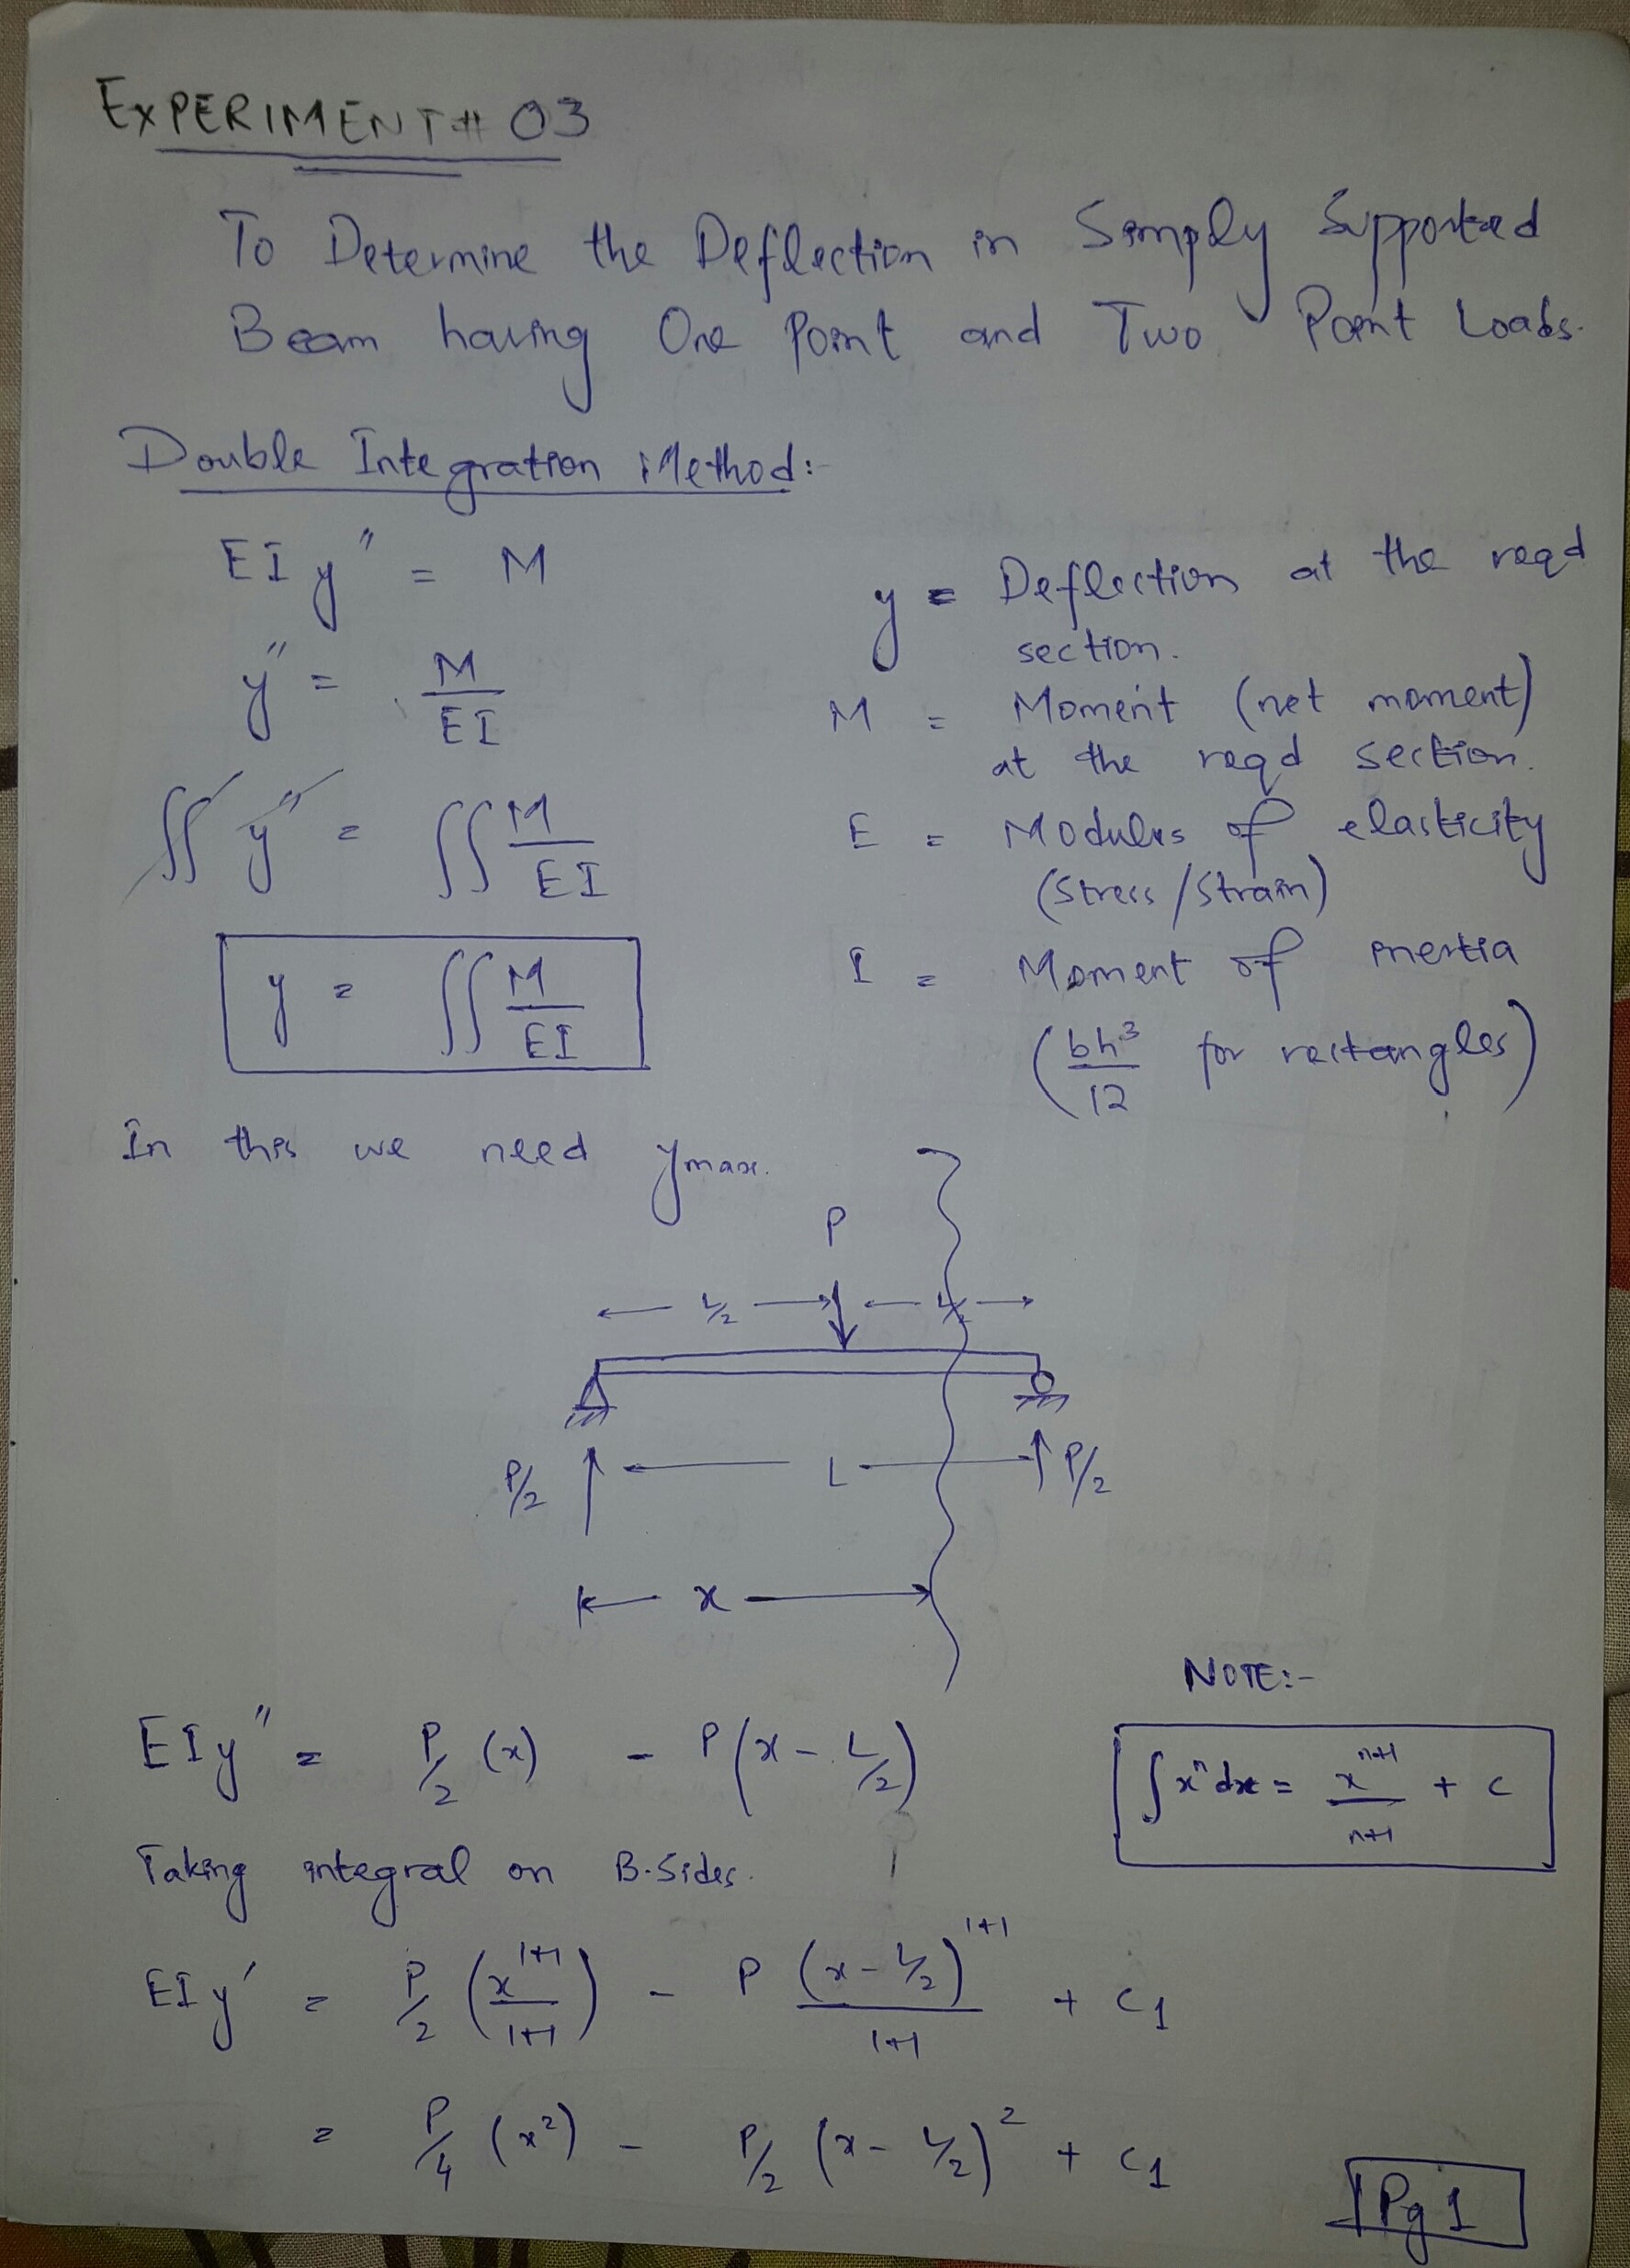 EXPERIMENT # 03
To Determine the Deflection in Simply Supported
Beam having One Point and Two Point Loads.
Double Integration Method:-
EIy" = M
y" = M/EI
∫∫ y" = ∫∫ M/EI
y = ∫∫ M/EI
y = Deflection at the reqd
section.
M = Moment (net moment)
at the reqd section.
E = Modulus of elasticity
(Stress/Strain)
I = Moment of inertia
(bh³/12 for rectangles)
In this we need ymax.
P
L/2 L/2
P/2 L P/2
x
NOTE:-
∫xⁿdx = xⁿ⁺¹/n+1 + c
EIy" = P/2 (x) - P(x - L/2)
Taking integral on B.Sides.
EIy' = P/2 (x¹⁺¹/1+1) - P (x - L/2)¹⁺¹/1+1 + C1
= P/4 (x²) - P/2 (x - L/2)² + C1
Pg 1